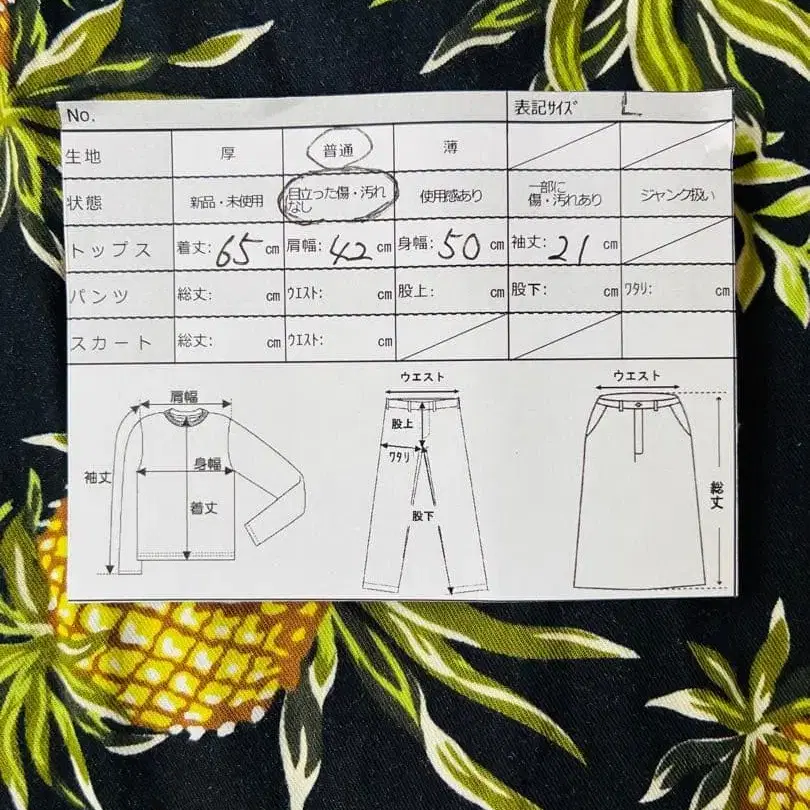 No. 表記ｻｲｽﾞ L
生地 厚 普通 薄
状態 新品・未使用 目立った傷・汚れ 使用感あり 一部に ジャンク扱い
なし 傷・汚れあり
トップス 着丈: 65 cm 肩幅: 42 cm 身幅: 50 cm 袖丈: 21 cm
パンツ 総丈: cm ｳｴｽﾄ: cm 股上: cm 股下: cm ﾜﾀﾘ: cm
スカート 総丈: cm ｳｴｽﾄ: cm
ウエスト ウエスト
肩幅
股上
身幅 ﾜﾀﾘ
袖丈
総丈
着丈
股下